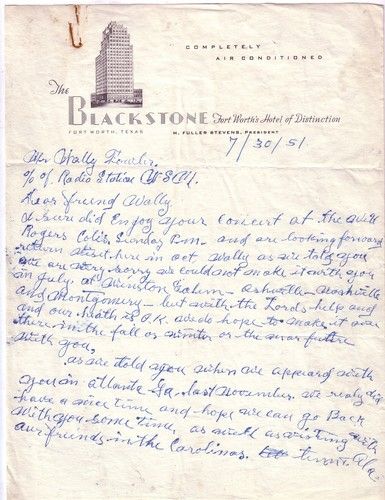 COMPLETELY
AIR CONDITIONED
The
BLACKSTONE Fort Worth's Hotel of Distinction
FORT WORTH, TEXAS H. FULLER STEVENS, PRESIDENT
7/30/51.
Mr Wally Fowler.
c/o of Radio Station W.S.M.
Dear friend Wally.
I sure did Enjoy your Concert at the Will
Rogers Colis. Sunday P.m. and are looking forward
return visit here in oct Wally as we told you
we are very sorry we could not make it with you
in July at Winston Salem - Ashville - Nashville
and Montgomery - but with the Lords help and
and our health is O.K. we do hope to make it over
there in the fall or winter or the near future
with you.
as we told you when we appeard with
you in atlanta Ga. last November. we realy did
have a nice time and hope we can go Back
with you some time, as well as visiting with
our friends in the Carolinas. Tenn. Ala.